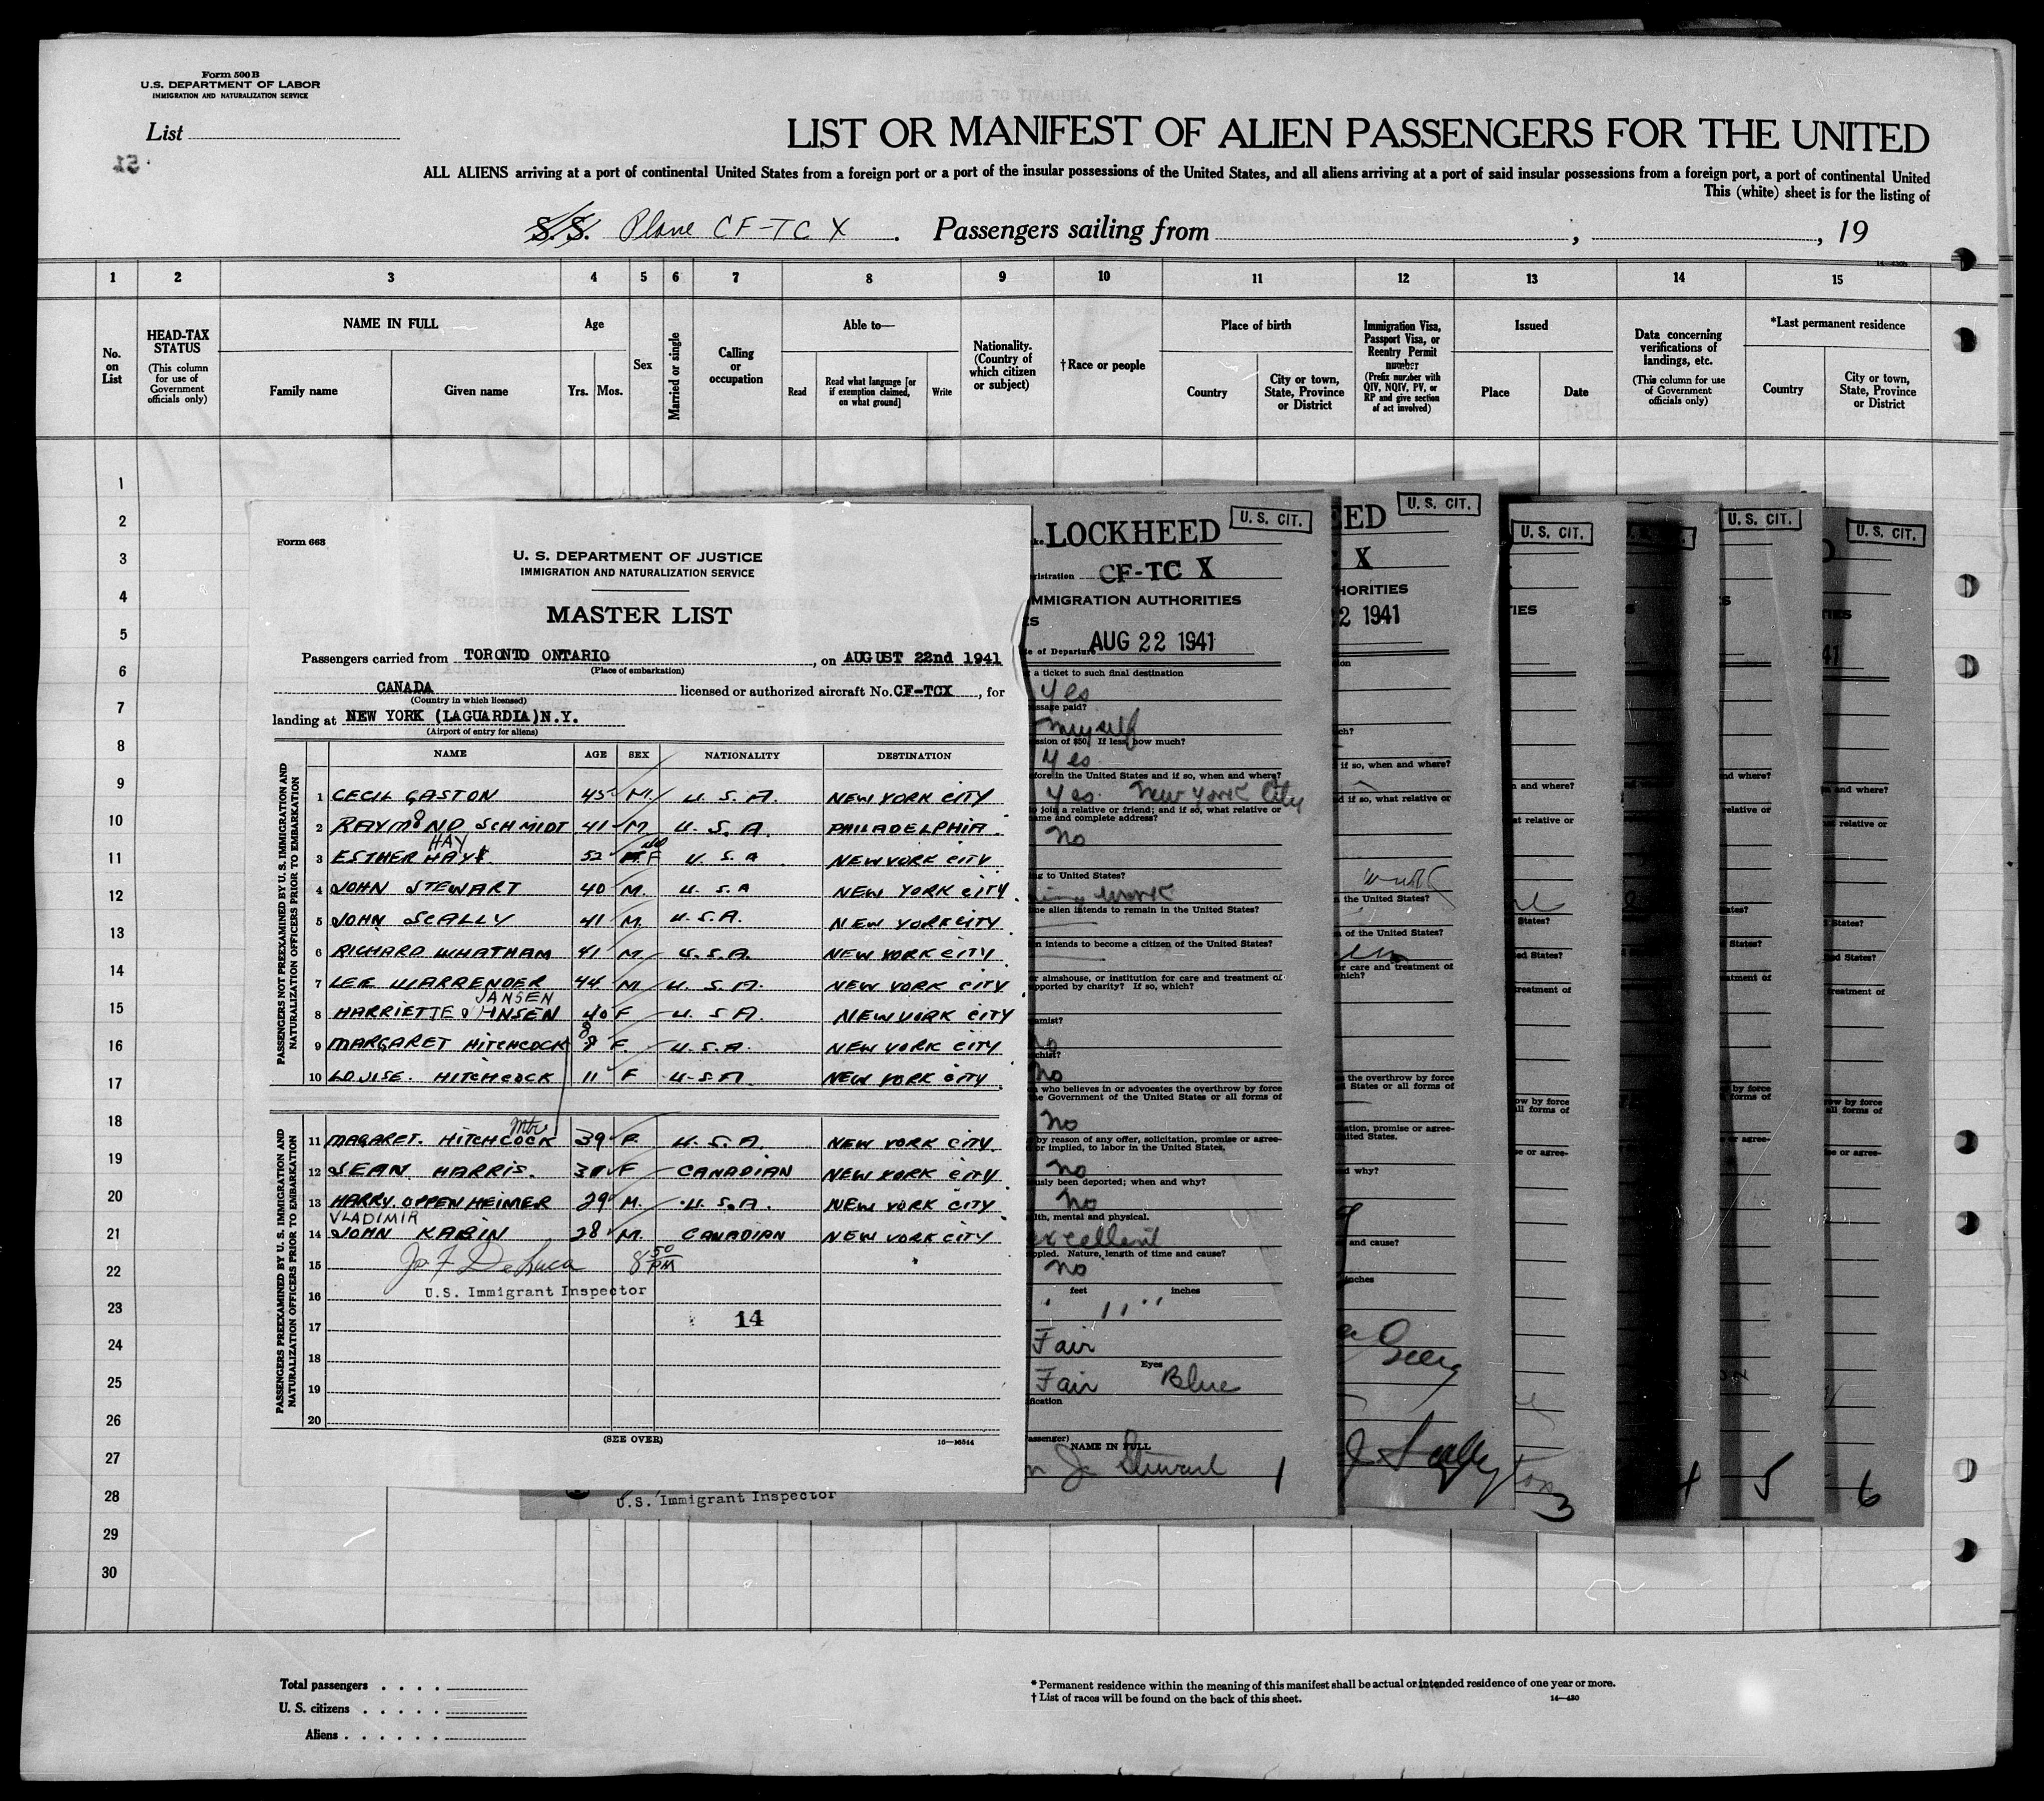 Form 500B
U.S. DEPARTMENT OF LABOR
IMMIGRATION AND NATURALIZATION SERVICE
List
51
LIST OR MANIFEST OF ALIEN PASSENGERS FOR THE UNITED
ALL ALIENS arriving at a port of continental United States from a foreign port or a port of the insular possessions of the United States, and all aliens arriving at a port of said insular possessions from a foreign port, a port of continental United
This (white) sheet is for the listing of
S.S. Plane CF-TC X . Passengers sailing from , , 19
1 2 3 4 5 6 7 8 9 10 11 12 13 14 15
No. on List
HEAD-TAX STATUS
(This column for use of Government officials only)
NAME IN FULL
Family name Given name
Age
Yrs. Mos.
Sex
Married or single
Calling or occupation
Able to—
Read
Read what language [or if exemption claimed, on what ground]
Write
Nationality. (Country of which citizen or subject)
†Race or people
Place of birth
Country
City or town, State, Province or District
Immigration Visa, Passport Visa, or Reentry Permit number
(Prefix number with QIV, NQIV, PV, or RP and give section of act involved)
Issued
Place Date
Data concerning verifications of landings, etc.
(This column for use of Government officials only)
*Last permanent residence
Country
City or town, State, Province or District
1
2
3
4
5
6
7
8
9
10
11
12
13
14
15
16
17
18
19
20
21
22
23
24
25
26
27
28
29
30
Form 663
U. S. DEPARTMENT OF JUSTICE
IMMIGRATION AND NATURALIZATION SERVICE
MASTER LIST
Passengers carried from TORONTO ONTARIO , on AUGUST 22nd 1941
(Place of embarkation)
CANADA licensed or authorized aircraft No. CF-TCX , for
(Country in which licensed)
landing at NEW YORK (LAGUARDIA) N.Y.
(Airport of entry for aliens)
NAME AGE SEX NATIONALITY DESTINATION
PASSENGERS NOT PREEXAMINED BY U.S. IMMIGRATION AND NATURALIZATION OFFICERS PRIOR TO EMBARKATION
1 CECIL GASTON 45 M. U. S. A. NEW YORK CITY
2 RAYMOND SCHMIDT 41 M U. S. A. PHILADELPHIA.
HAY
3 ESTHER HAYS 52 F U. S. A NEW YORK CITY
4 JOHN STEWART 40 M. U. S. A NEW YORK CITY
5 JOHN SCALLY 41 M. U.S.A. NEW YORK CITY
6 RICHARD WHATHAM 41 M. U.S.A. NEW YORK CITY
7 LEE WARRENDER 44 M U. S. A. NEW YORK CITY
JANSEN
8 HARRIETTE JANSEN 40 F U. S A. NEW YORK CITY
9 MARGARET HITCHCOCK 8 F. U. S. A. NEW YORK CITY
10 LOUISE. HITCHCOCK 11 F U.S.A. NEW YORK CITY
PASSENGERS PREEXAMINED BY U. S. IMMIGRATION AND NATURALIZATION OFFICERS PRIOR TO EMBARKATION
11 MAGARET. HITCHCOCK 39 F. U. S. A. NEW YORK CITY.
12 JEAN HARRIS. F CANADIAN NEW YORK CITY
13 HARRY. OPPENHEIMER 29 M. U.S.A. NEW YORK CITY
VLADIMIR
14 JOHN KABIN 28 M. CANADIAN NEW YORK CITY
15 Jos F DeLuca 8 50 PM
16 U.S. Immigrant Inspector
17 14
18
19
20
(SEE OVER) 16—16544
U.S. Immigrant Inspector
LOCKHEED
U. S. CIT.
CF-TC X
IMMIGRATION AUTHORITIES
of Departure AUG 22 1941
a ticket to such final destination
Yes
paid?
myself
of $50, If less, how much?
Yes
in the United States and if so, when and where?
Yes. New York City
join a relative or friend; and if so, what relative or
name and complete address?
No
to United States?
work
alien intends to remain in the United States?
intends to become a citizen of the United States?
almshouse, or institution for care and treatment of
supported by charity? If so, which?
No
No
who believes in or advocates the overthrow by force
the Government of the United States or all forms of
No
by reason of any offer, solicitation, promise or agree-
or implied, to labor in the United States.
No
been deported; when and why?
No
mental and physical.
excellent
Nature, length of time and cause?
No
feet inches
11"
Fair
Eyes
Fair Blue
NAME IN FULL
J. Stewart 1
U. S. CIT.
X
1941
if so, when and where?
if so, what relative or
the United States?
of the United States?
care and treatment of
which?
the overthrow by force
States or all forms of
promise or agree-
why?
and cause?
inches
J Scally
U. S. CIT.
and where?
relative or
States?
treatment of
by force
all forms of
or agree-
3
4
U. S. CIT.
where?
relative or
States?
by force
5
U. S. CIT.
and where?
relative or
States?
treatment of
by force
all forms of
or agree-
6
Total passengers . . . .
U. S. citizens . . . . .
Aliens . . . . . .
* Permanent residence within the meaning of this manifest shall be actual or intended residence of one year or more.
† List of races will be found on the back of this sheet. 14—430